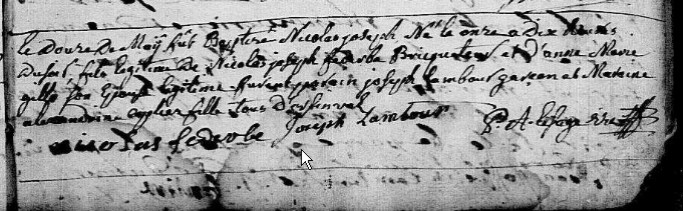 le Douze De Maÿ fut Baptizé Nicolas joseph Né le onze a Dix heures
Du soir fils legitime De Nicolas joseph federbe Bricqueteur et D'anne Marie
gille son Epouse legitime furent parain joseph Lambour garcon et Maraine
alexandrine fille tous D'
Nicolas federbe Joseph Lambour P. A. lepage